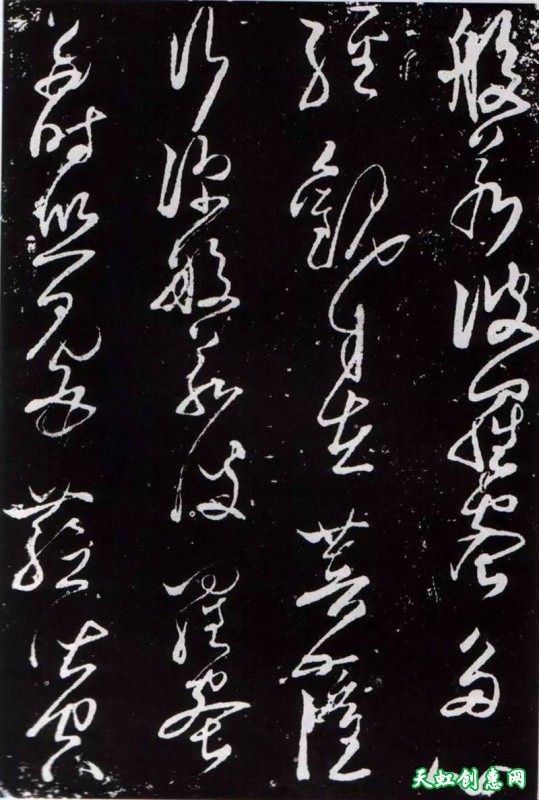 般若波羅蜜多心
經觀自在菩薩
行深般若波羅蜜
多時照見五蘊皆空
天虹创惠网